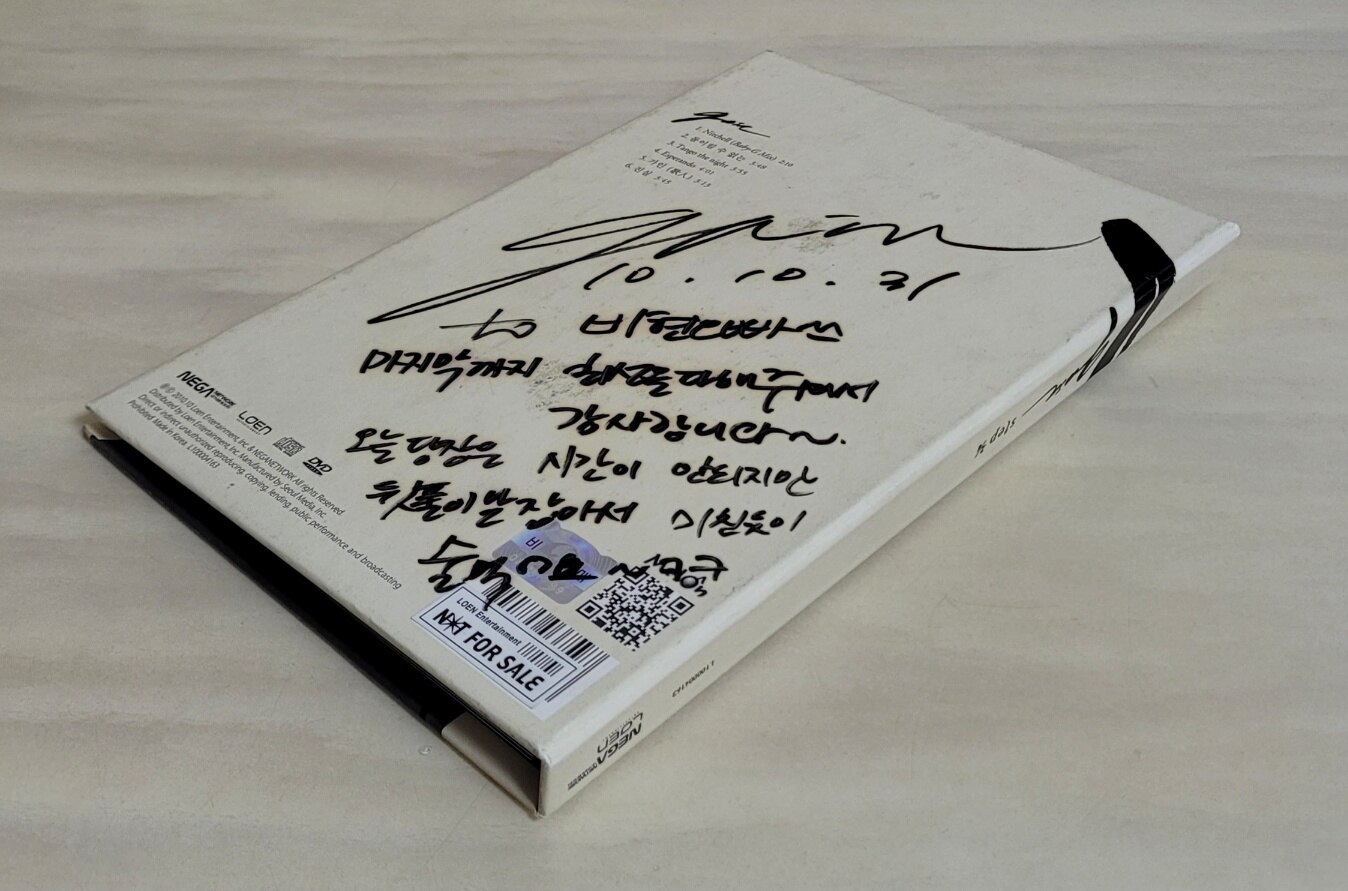 gain
1. Nuebell (Baby-G Mix) 2:10
2. 돌이킬 수 없는 3:48
3. Tango the night 3:55
4. Esperando 4:01
5. 가인 (歌人) 5:15
6. 진실 3:45
gain
10. 10. 31
to 비현오빠쓰
마지막까지 최선을다해주셔서
감사합니다~.
오늘당장은 시간이 안되지만
뒷풀이날잡아서 미친듯이
술먹
NEGA NETWORK
LOEN
DVD
℗© 2010.10 Loen Entertainment, Inc. & NEGANETWORK All rights Reserved
Distributed by Loen Entertainment, Inc. Manufactured by Seoul Media, Inc.
Direct or indirect unauthorized reproducing, copying, lending, public performance and broadcasting
Prohibited Made in Korea. L100004163
비
LOEN Entertainment
NOT FOR SALE
gain
step 2/4
L100004163
LOEN
NEGA